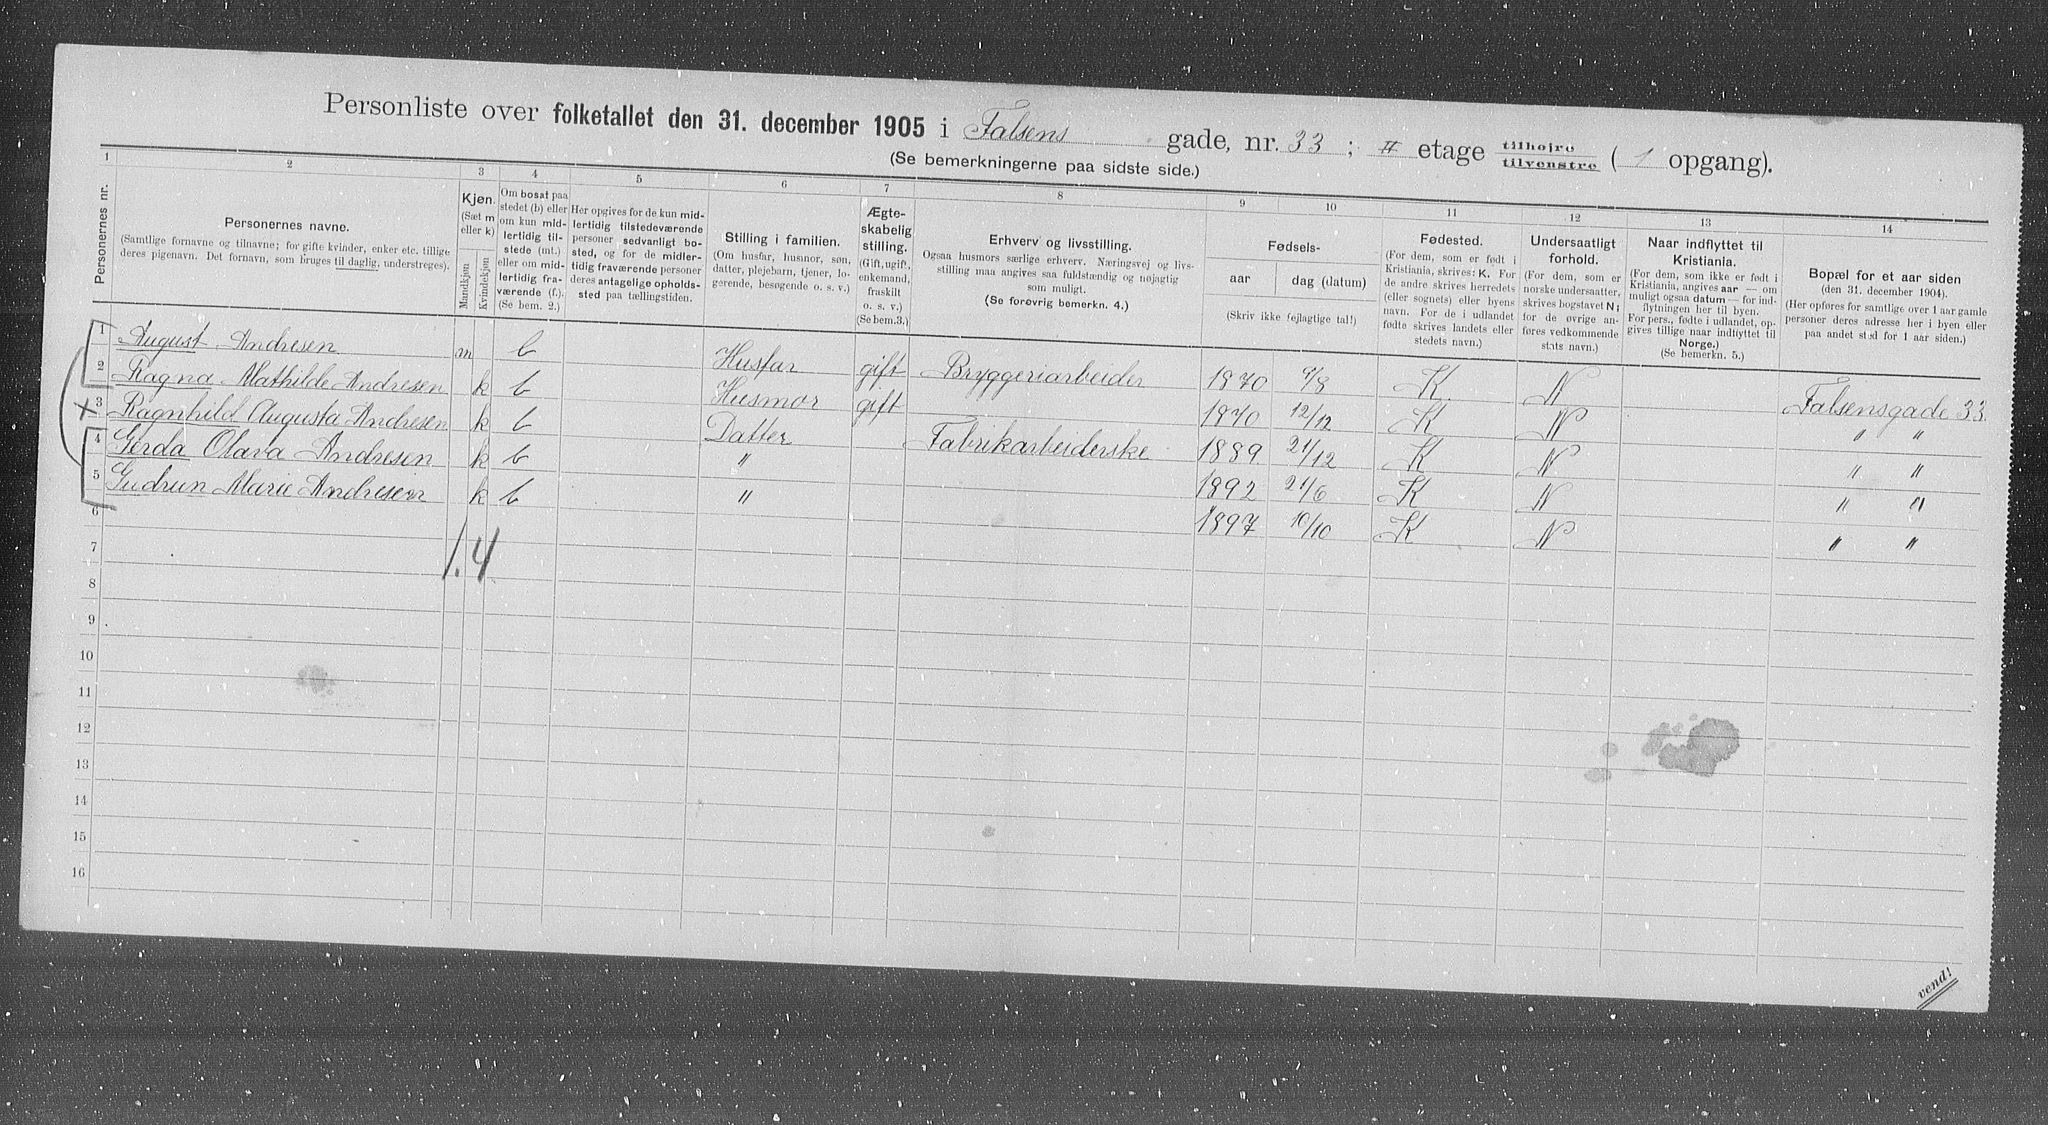 Personliste over folketallet den 31. december 1905 i Falsens gade, nr. 33 ; II etage tilhøjre tilvenstre ( 1 opgang).
(Se bemerkningerne paa sidste side.)
1 2 3 4 5 6 7 8 9 10 11 12 13 14
Personernes nr.
Personernes navne.
(Samtlige fornavne og tilnavne; for gifte kvinder, enker etc. tillige
deres pigenavn. Det fornavn, som bruges til daglig, understreges).
Kjøn.
(Sæt m
eller k)
Mandkjøn
Kvindekjøn
Om bosat paa
stedet (b) eller
om kun mid-
lertidig til-
stede (mt.)
eller om mid-
lertidig fra-
værende (f.).
(Se bem. 2.)
Her opgives for de kun mid-
lertidig tilstedeværende
personer sedvanligt bo-
sted, og for de midler-
tidig fraværende personer
deres antagelige opholds-
sted paa tællingstiden.
Stilling i familien.
(Om husfar, husmor, søn,
datter, plejebarn, tjener, lo-
gerende, besøgende o. s. v.)
Ægte-
skabelig
stilling.
(Gift, ugift,
enkemand,
fraskilt
o. s. v.)
(Se bem.3.)
Erhverv og livsstilling.
Ogsaa husmors særlige erhverv. Næringsvej og livs-
stilling maa angives saa fuldstændig og nøjagtig
som muligt.
(Se forøvrig bemerkn. 4.)
Fødsels-
aar
dag (datum)
(Skriv ikke fejlagtige tal!)
Fødested.
(For dem, som er født i
Kristiania, skrives: K. For
de andre skrives herredets
(eller sognets) eller byens
navn. For de i udlandet
fødte skrives landets eller
stedets navn.)
Undersaatligt
forhold.
(For dem, som er
norske undersaatter,
skrives bogstavet N;
for de øvrige an-
føres vedkommende
stats navn.)
Naar indflyttet til
Kristiania.
(For dem, som ikke er født i
Kristiania, angives aar — om
muligt ogsaa datum — for ind-
flytningen her til byen.
For pers., fødte i udlandet, op-
gives tillige naar indflyttet til
Norge.)
(Se bemerkn. 5.)
Bopæl for et aar siden
(den 31. december 1904).
(Her opføres for samtlige over 1 aar gamle
personer deres adresse her i byen eller
paa andet sted for 1 aar siden.)
1 August Andresen m b Husfar gift Bryggeriarbeider 1870 9/8 K. N Falsensgade 33
2 Ragna Mathilde Andresen k b Husmor gift 1870 12/12 K N " "
3 Ragnhild Augusta Andresen k b Datter Fabrikarbeiderske 1889 21/12 K N " "
4 Gerda Olava Andresen k b " 1892 21/6 K N " "
5 Gudrun Marie Andresen k b " 1897 10/10 K N " "
6
1.4
7
8
9
10
11
12
13
14
15
16
vend!